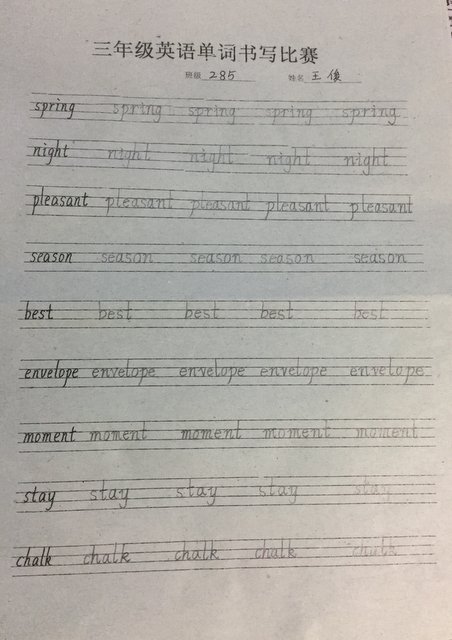 三年级英语单词书写比赛
班级 285 姓名 王俊
spring spring spring spring spring
night night night night night
pleasant pleasant pleasant pleasant pleasant
season season season season season
best best best best best
envelope envelope envelope envelope envelope
moment moment moment moment moment
stay stay stay stay stay
chalk chalk chalk chalk chalk